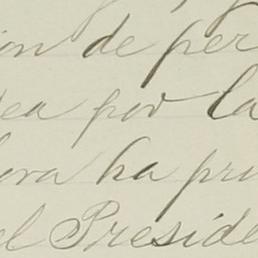 ión de per
ea por la
ora ha pru
el Preside